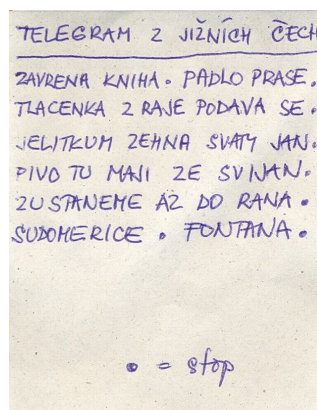 TELEGRAM Z JIŽNÍCH ČECH
ZAVRENA KNIHA. PADLO PRASE.
TLACENKA Z RAJE PODAVA SE.
JELITKUM ZEHNA SVATY JAN.
PIVO TU MAJI ZE SVIJAN.
ZUSTANEME AZ DO RANA.
SUDOMERICE. FONTANA.
. = stop